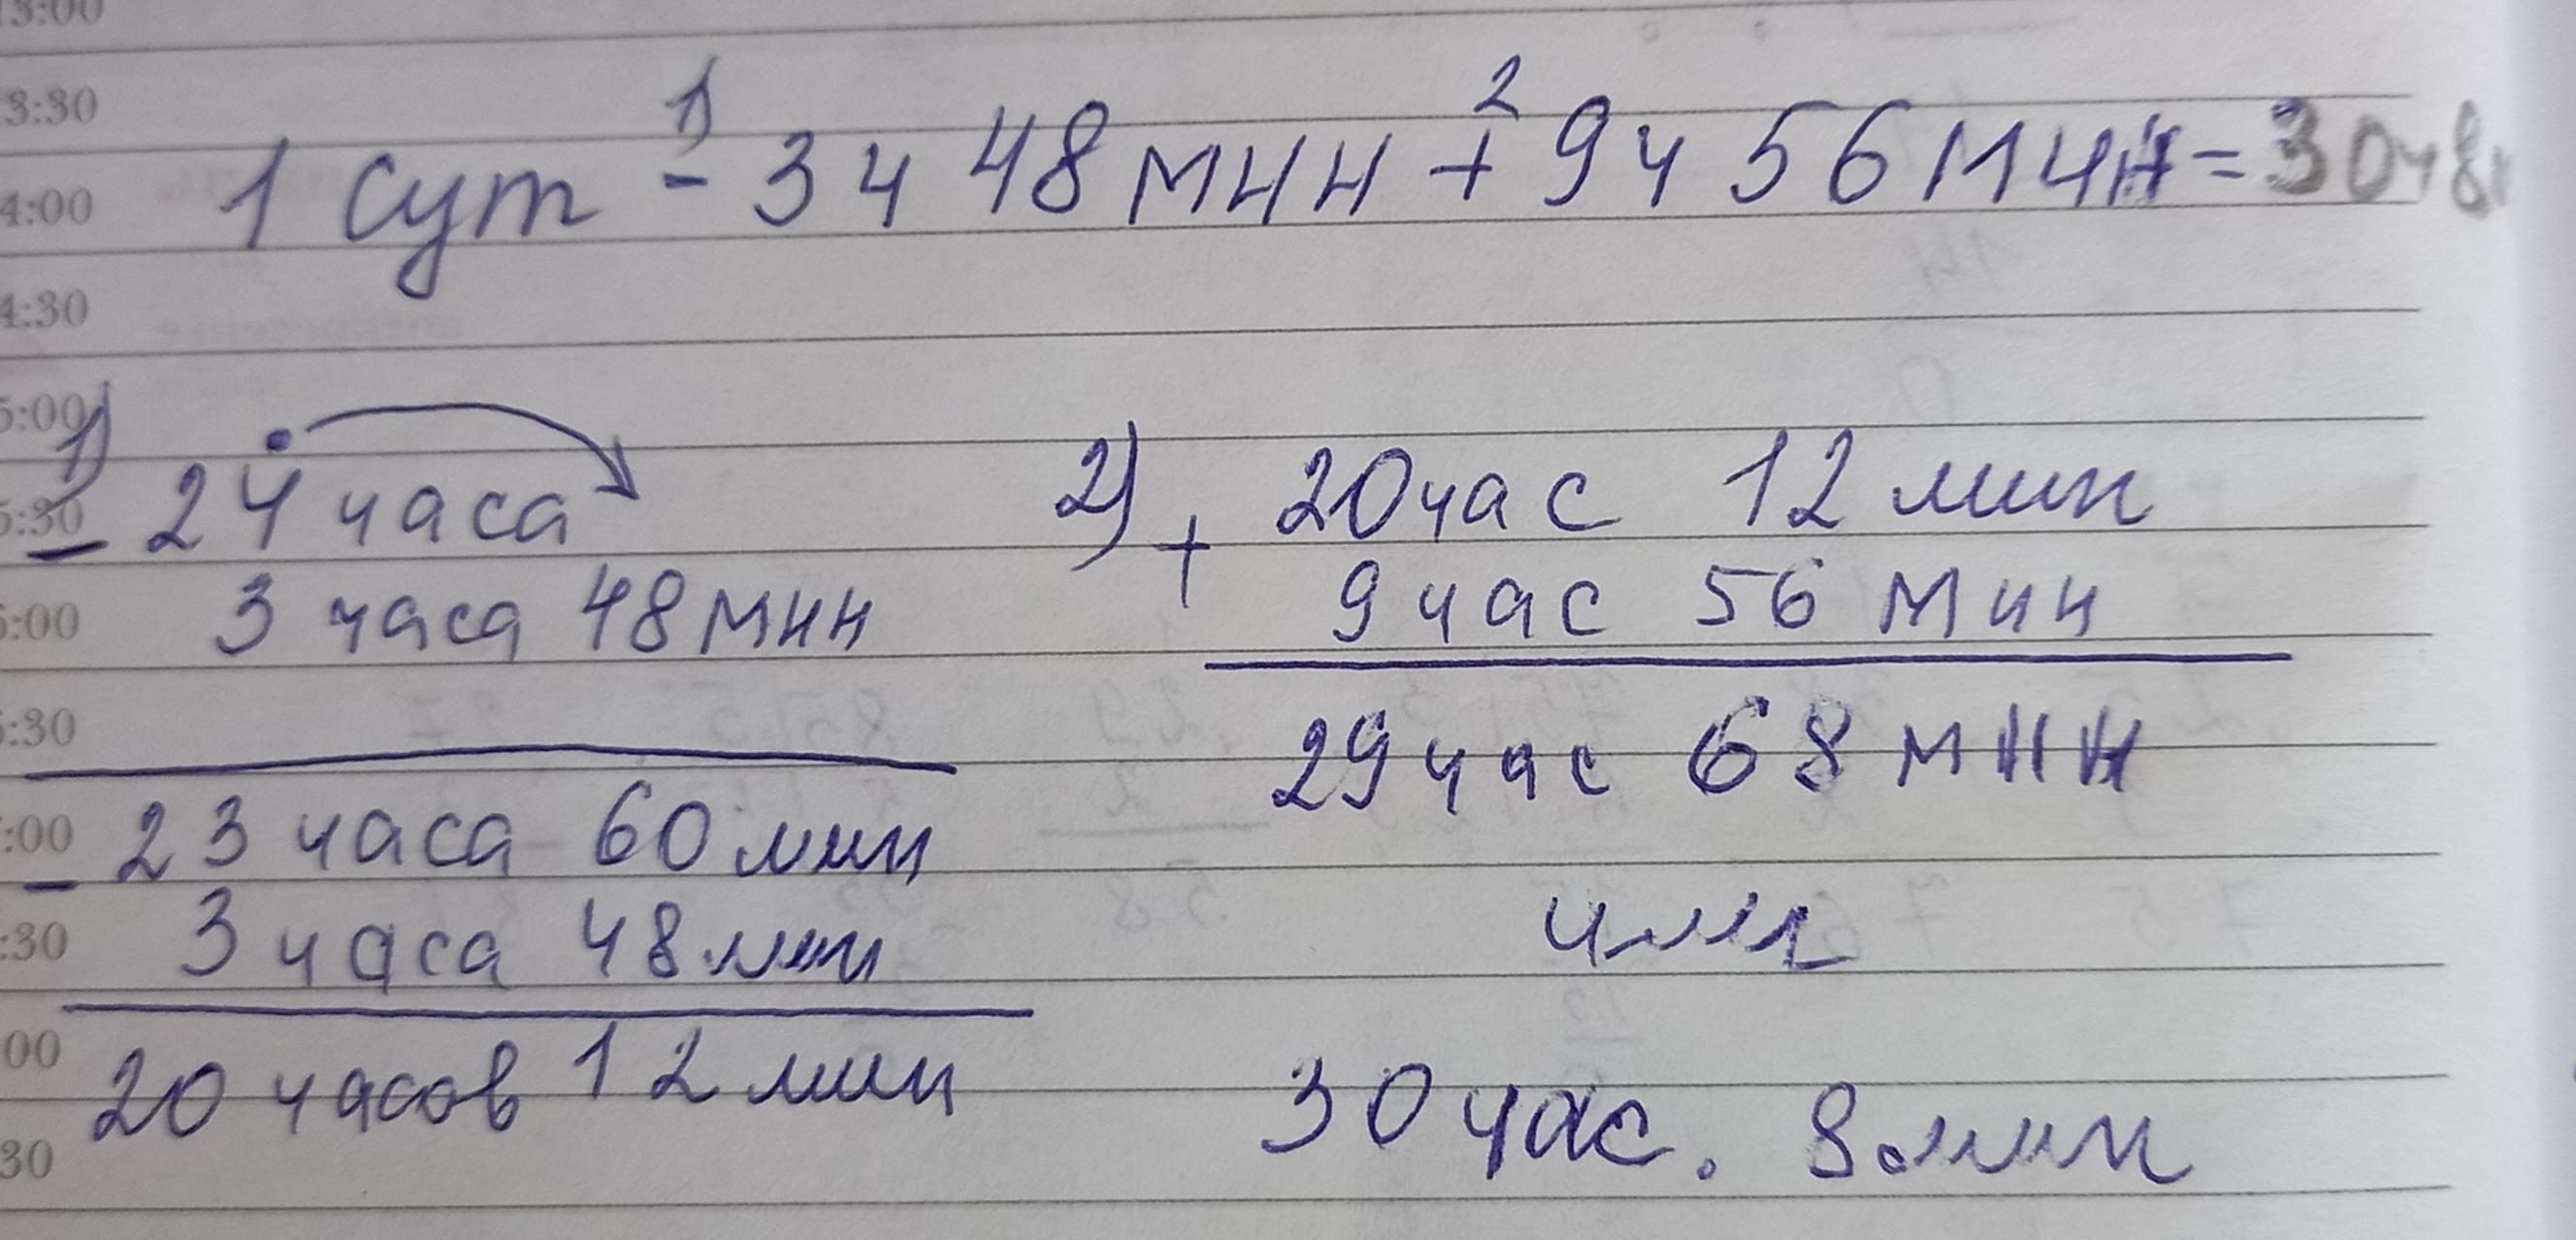 3:00
3:30
4:00
4:30
5:00
5:30
6:00
6:30
:00
:30
00
30
1) 2
1 сут - 3 ч 48 мин + 9 ч 56 мин = 30 ч 8
1)
- 24 часа
3 часа 48 мин
- 23 часа 60 мин
3 часа 48 мин
20 часов 12 мин
2) + 20 час 12 мин
9 час 56 мин
29 час 68 мин
или
30 час. 8 мин